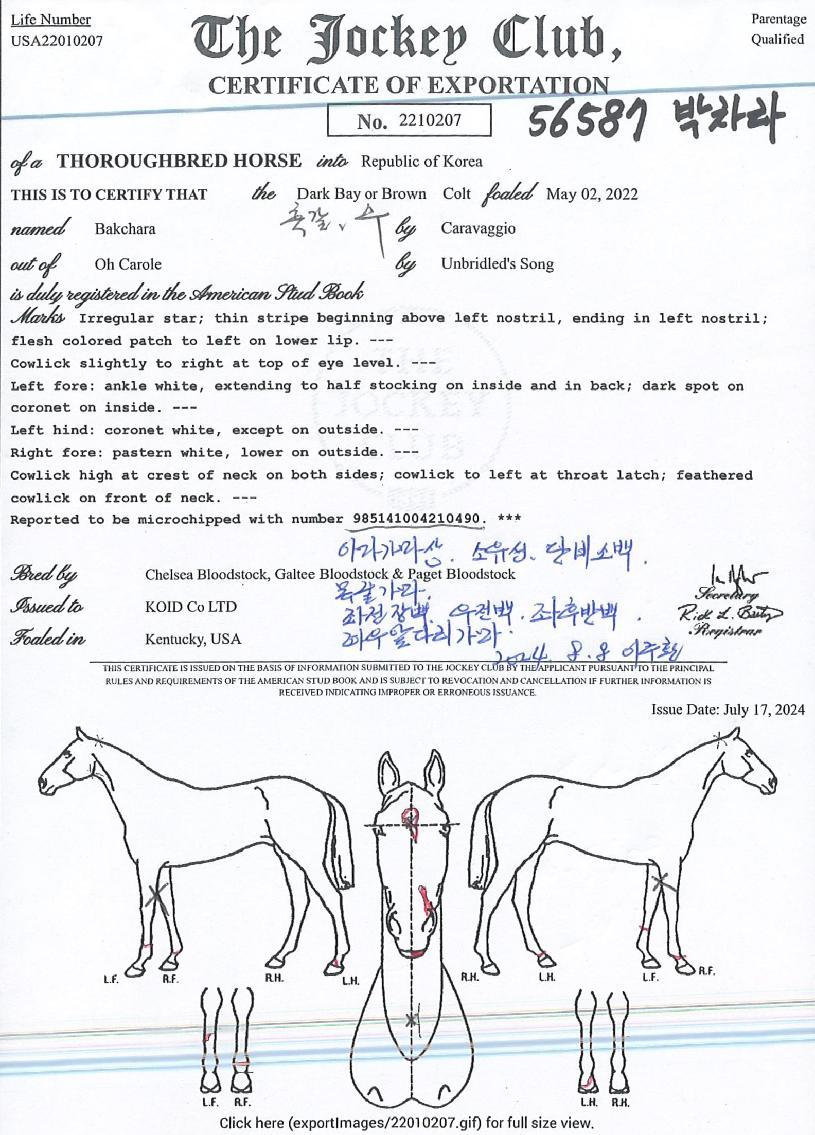 Life Number
USA22010207
The Jockey Club,
Parentage
Qualified
CERTIFICATE OF EXPORTATION
No. 2210207
56587 박차라
of a THOROUGHBRED HORSE into Republic of Korea
THIS IS TO CERTIFY THAT the Dark Bay or Brown Colt foaled May 02, 2022
흑갈、수
named Bakchara by Caravaggio
out of Oh Carole by Unbridled's Song
is duly registered in the American Stud Book
Marks Irregular star; thin stripe beginning above left nostril, ending in left nostril;
flesh colored patch to left on lower lip. ---
Cowlick slightly to right at top of eye level. ---
Left fore: ankle white, extending to half stocking on inside and in back; dark spot on
coronet on inside. ---
Left hind: coronet white, except on outside. ---
Right fore: pastern white, lower on outside. ---
Cowlick high at crest of neck on both sides; cowlick to left at throat latch; feathered
cowlick on front of neck. ---
Reported to be microchipped with number 985141004210490. ***
THE JOCKEY CLUB
소유성. 단비소백.
Bred by Chelsea Bloodstock, Galtee Bloodstock & Paget Bloodstock
목갈가마.
Issued to KOID Co LTD
좌전장백. 우전백. 좌후반백.
Secretary
Registrar
Foaled in Kentucky, USA
2024 8.8
THIS CERTIFICATE IS ISSUED ON THE BASIS OF INFORMATION SUBMITTED TO THE JOCKEY CLUB BY THE APPLICANT PURSUANT TO THE PRINCIPAL
RULES AND REQUIREMENTS OF THE AMERICAN STUD BOOK AND IS SUBJECT TO REVOCATION AND CANCELLATION IF FURTHER INFORMATION IS
RECEIVED INDICATING IMPROPER OR ERRONEOUS ISSUANCE.
Issue Date: July 17, 2024
L.F. R.F. R.H. L.H. R.H. L.H. L.F. R.F.
L.F. R.F. L.H. R.H.
Click here (exportImages/22010207.gif) for full size view.